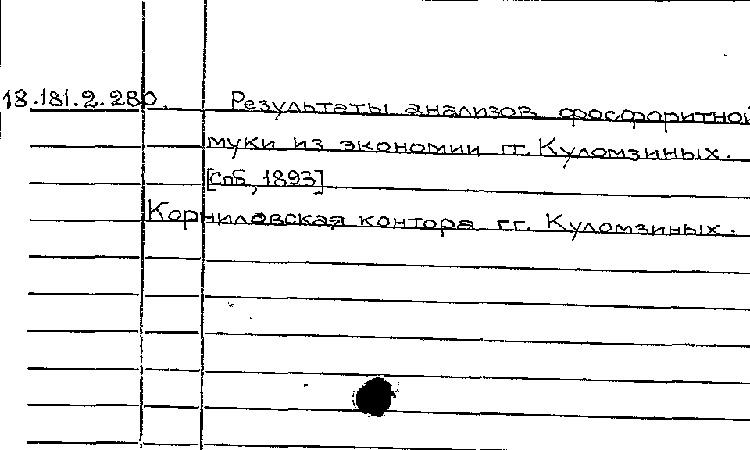 18.181.2.280. Результаты анализов фосфоритной
муки из экономии гг. Куломзиных.
[Спб, 1893]
Корниловская контора гг. Куломзиных.